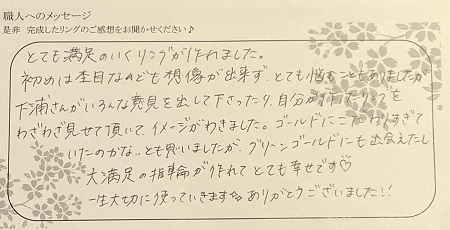 職人へのメッセージ
是非 完成したリングのご感想をお聞かせください♪
とても満足のいくリングが作れました。
初めは杢目なのども想像が出来ず、とても悩むこともありましたが
下浦さんがいろんな意見を出して下さったり、自分が作ったリングを
わざわざ見せて頂いて、イメージがわきました。ゴールドにこだわりすぎて
いたのかな、とも思いましたが、グリーンゴールドにも出会えたし、
大満足の指輪が作れてとても幸せです♡
一生大切に使っていきます ありがとうございました!!